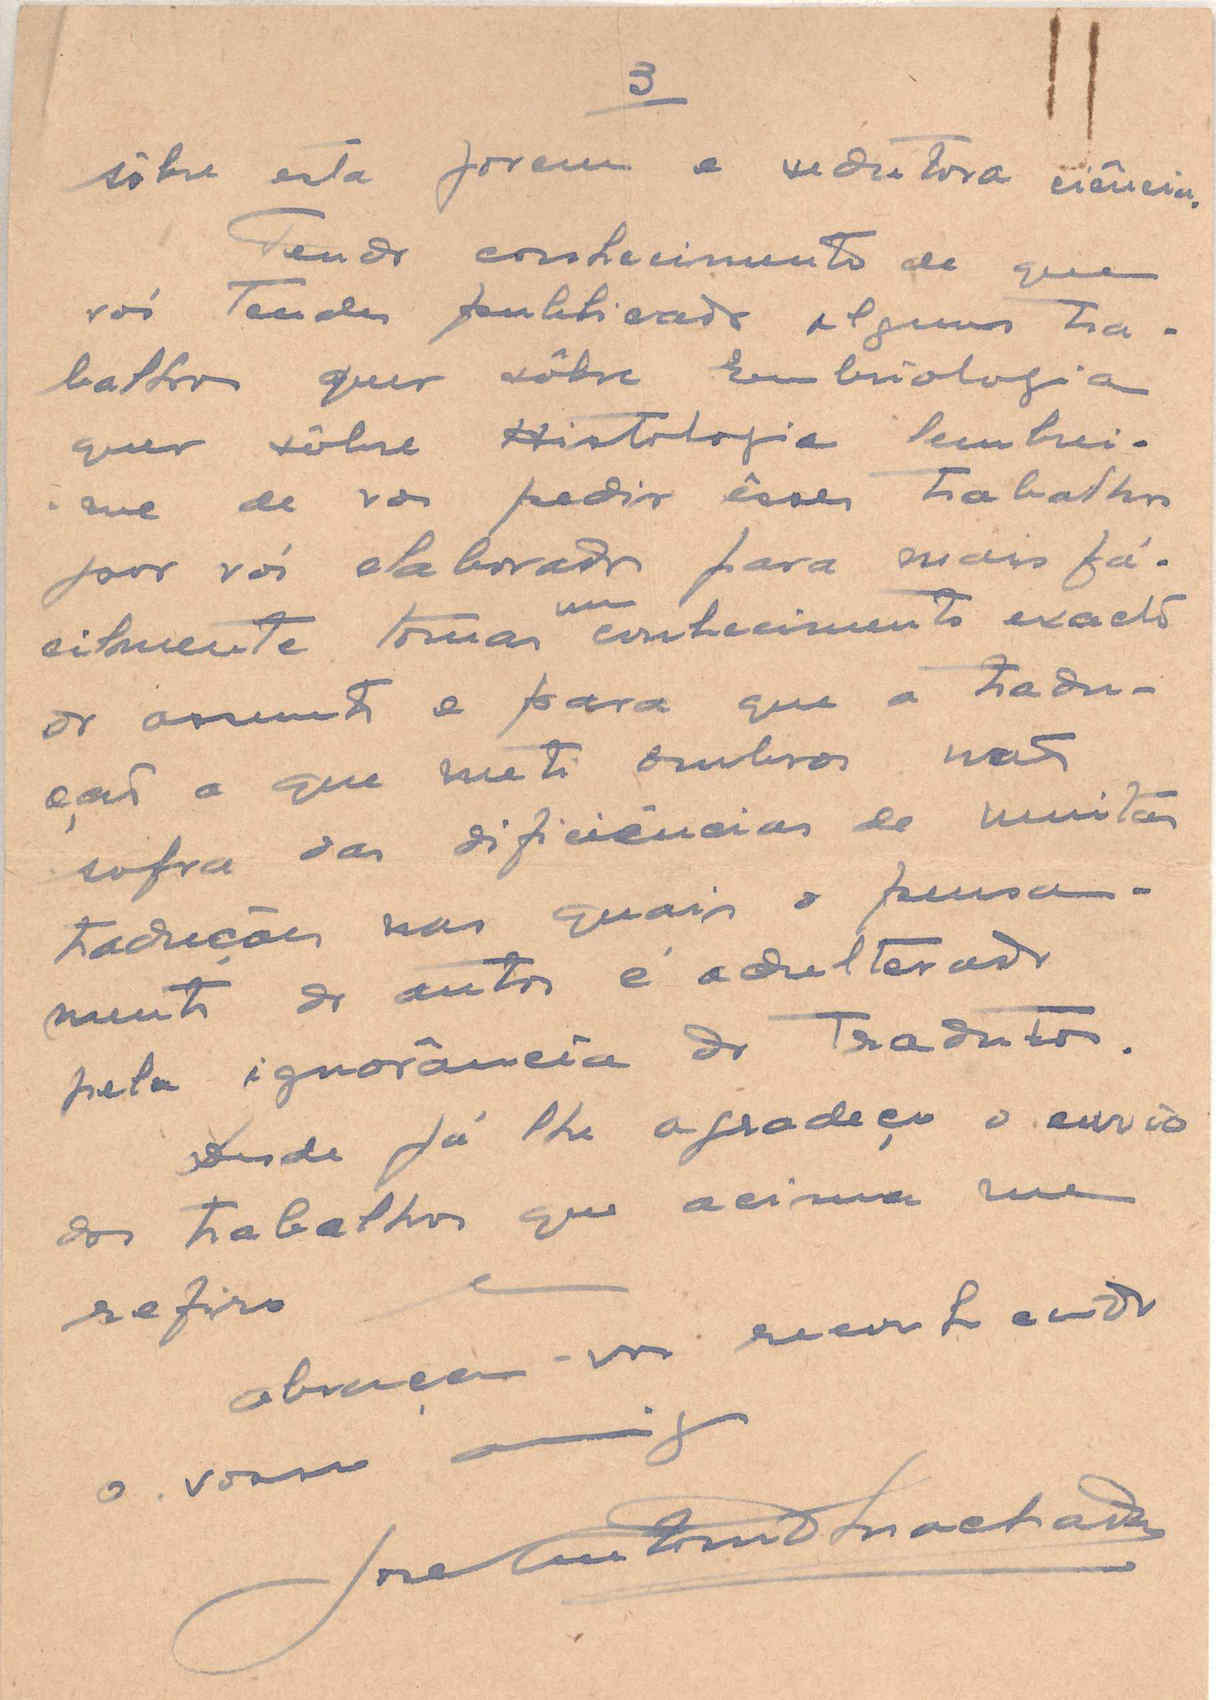 3
sôbre esta jovem e sedutora ciência.
Tendo conhecimento de que
vós tendes publicado alguns tra-
balhos quer sôbre Embriologia
quer sôbre Histologia lembrei-
-me de vos pedir êsses trabalhos
por vós elaborados para mais fá-
cilmente tomar um conhecimento exacto
do assunto e para que a tradu-
ção a que meti ombros não
sofra das dificiências de muitas
traduções nas quais o pensa-
mento do autor é adulterado
pela ignorância do tradutor.
Desde já lhe agradeço o envio
dos trabalhos que acima me
refiro e
abraça-vos reconhecido
o vosso amigo
José António Machado